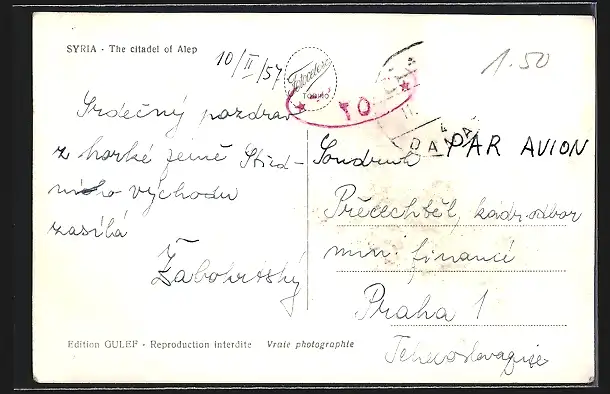 SYRIA - The citadel of Alep
10/II/57
Fotocelere
TORINO
٢٥
1.50
DAMA
PAR AVION
Srdečný pozdrav
z horké země Střed-
ního východu
zasílá
Zábohrtský
Soudruh
Přecechtěl, kadr. odbor
min. financí
Praha 1
Tchecoslovaquie
Edition GULEF - Reproduction interdite Vraie photographie